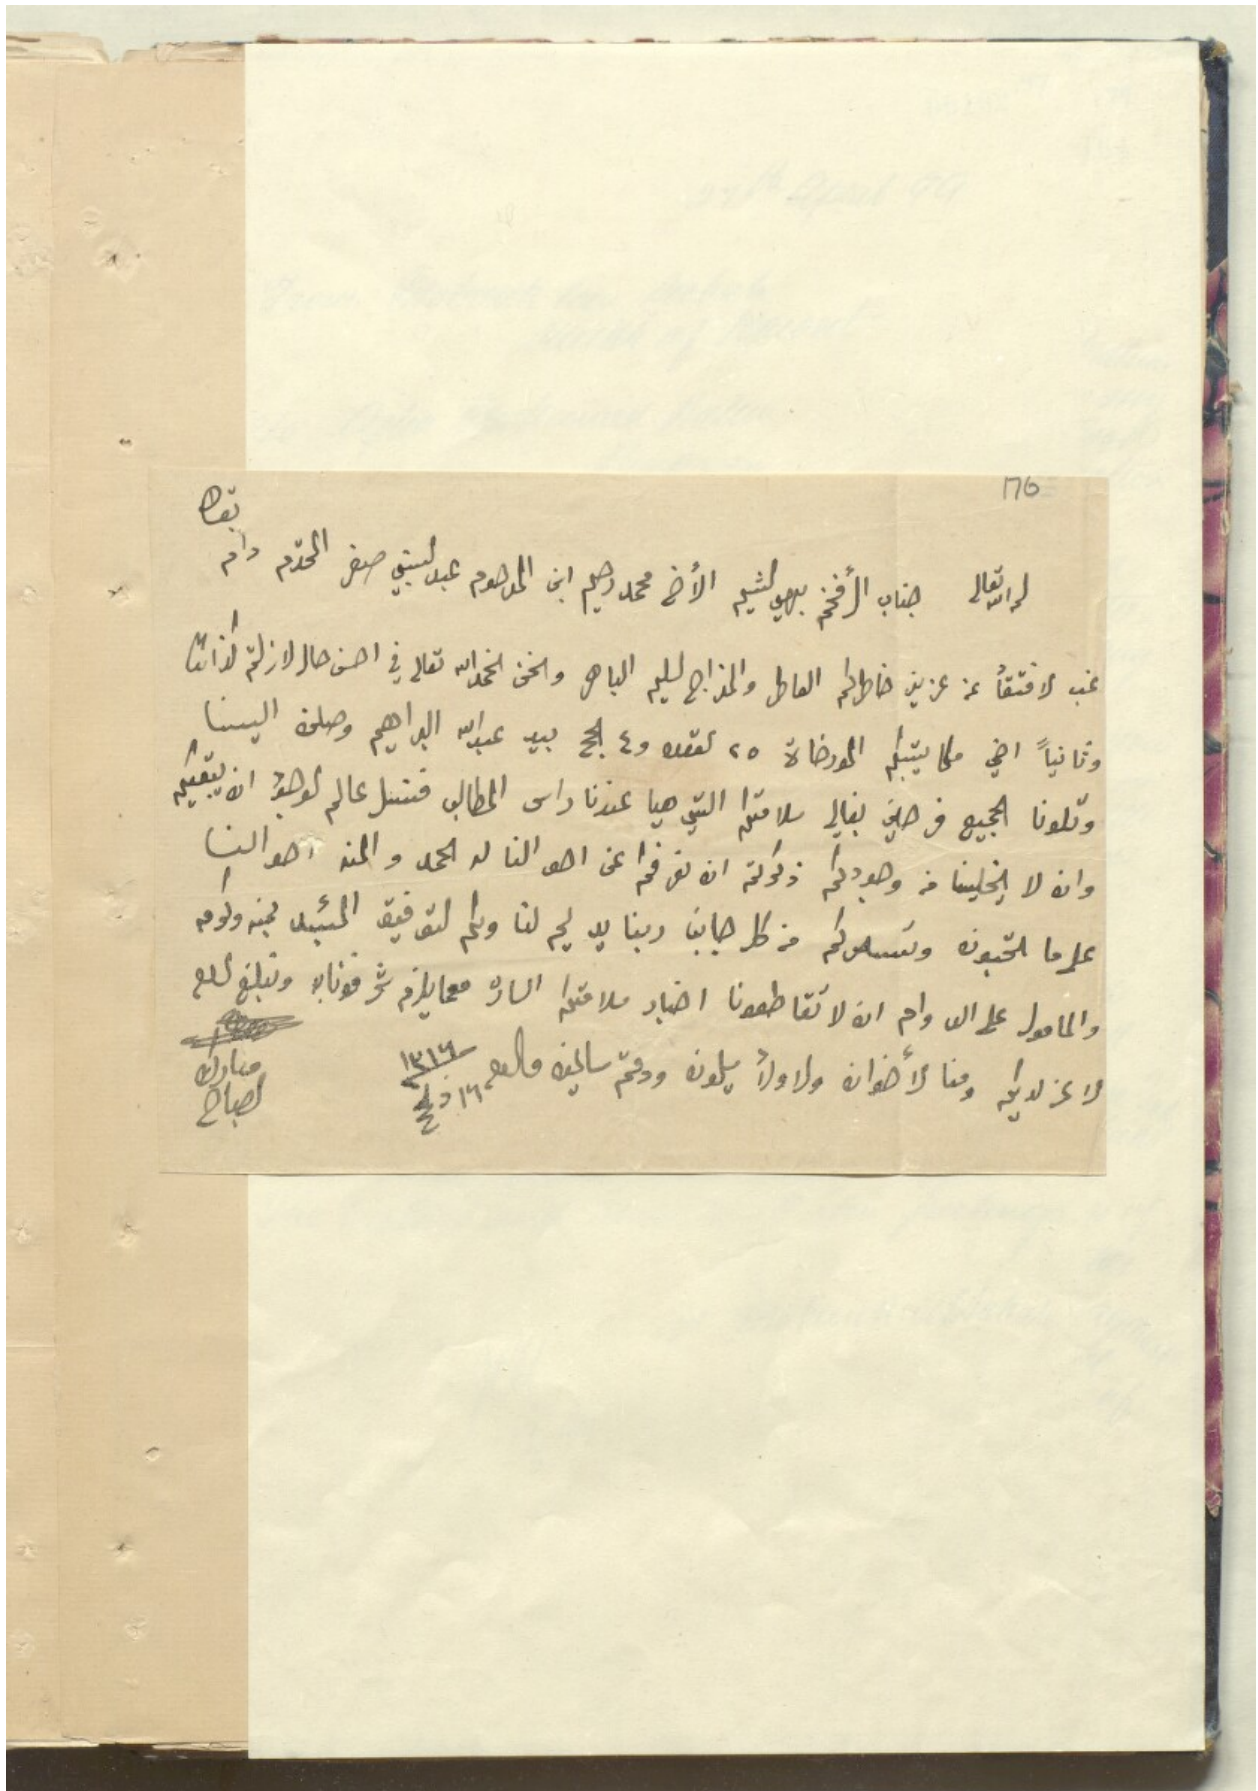 176
بقاه
لله تعالى جناب الأفخم بهي الشيم الأخ محمد رحيم ابن المرحوم عبد النبي صفر المحترم دام
غب الافتقاد عن عزيز خاطركم العاطر والمزاج السليم الباهر ونحن بحمد الله تعالى في احسن حال لازلتم كذالك
وثانياً اخي مكاتيبكم المورخات ٢٥ القعده و٤ الحج بيد عبدالله البراهيم وصلن الينا
وتلونا الجميع فرحين بغالي سلامتكم التي هيا عندنا راس المطالب فنسئل عالم الوجود ان يبقيكم
وان لا يخلينا من وجودكم ذكرتم ان نعرفكم عن احوالنا له الحمد والمنه احوالنا
على ما تحبون وتسركم من كل جانب ربنا يديم لنا ولكم التوفيق بمنه وكرمه
والمامول على الدوام ان لا تقاطعونا اخبار سلامتكم الساره مع ما يلزم شرفونا به وتبلغ السلام
لا عز لديكم ومنا الأخوان والاولاد يسلمون ودمتم سالمين والسلام ١٦ ذي الحج ١٣١٦
مبارك
الصباح